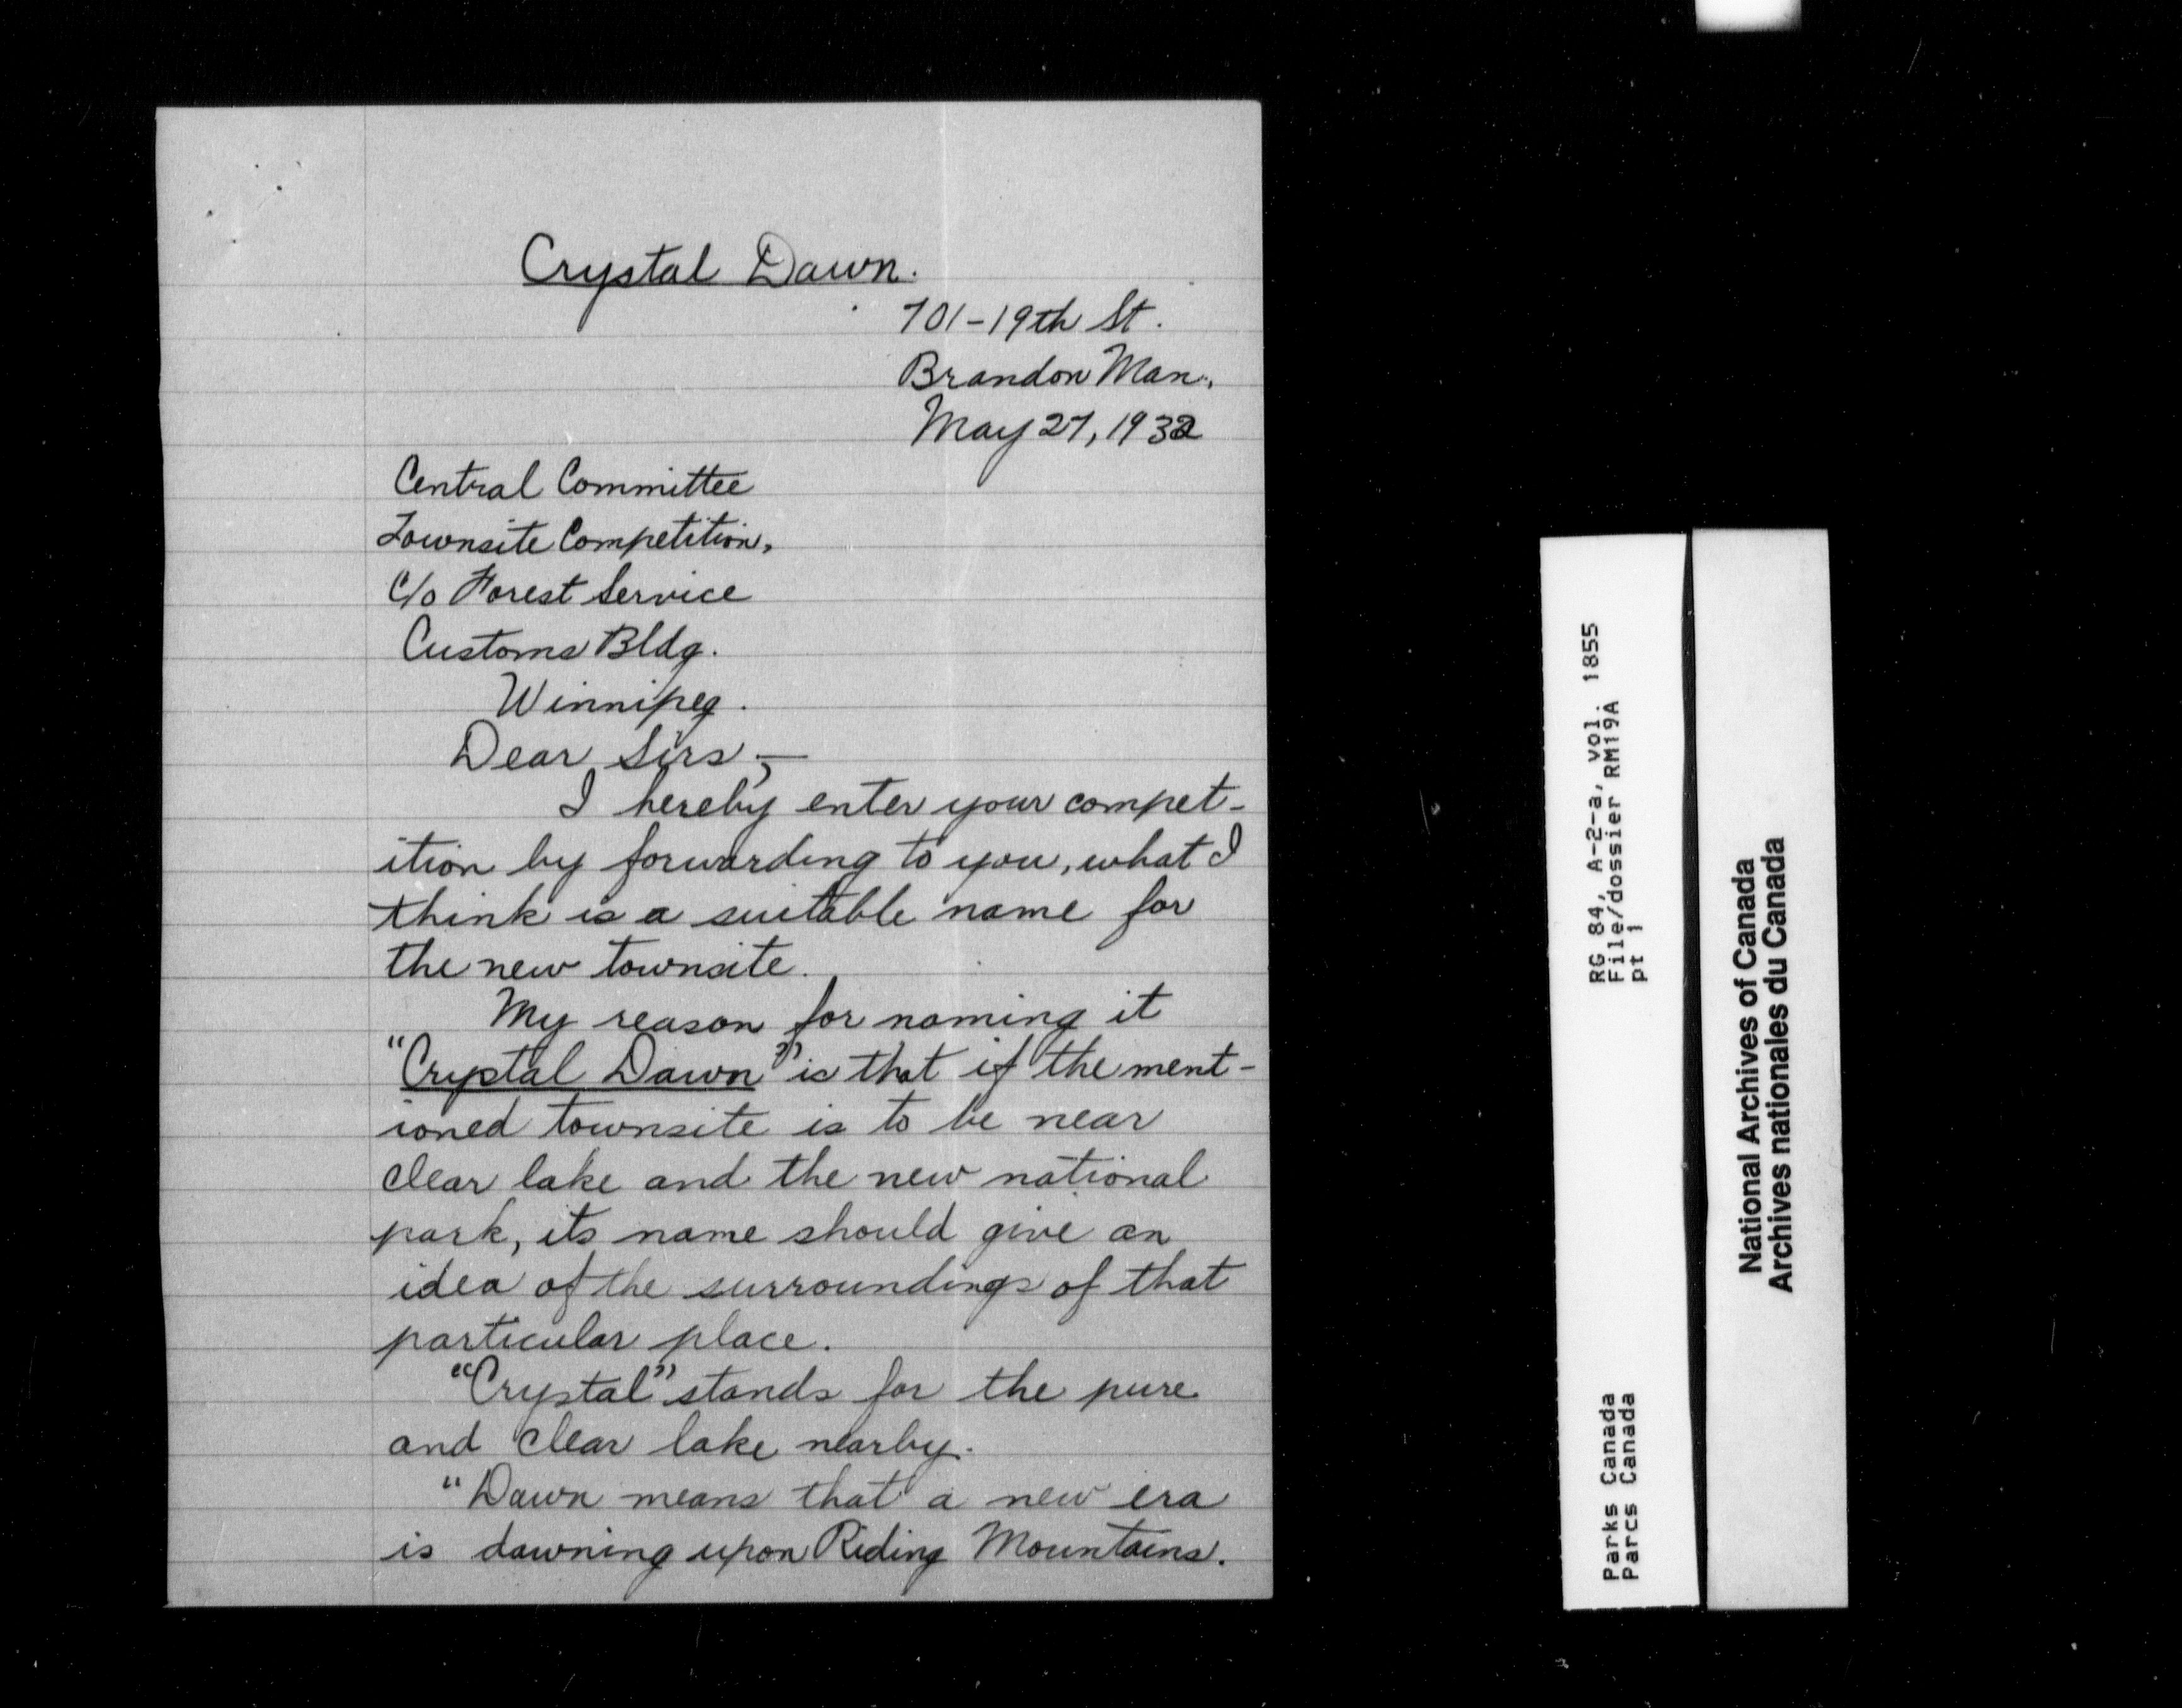 Crystal Dawn.
701-19th St.
Brandon Man.
May 27, 1932
Central Committee
Townsite Competition,
C/o Forest Service
Customs Bldg.
Winnipeg.
Dear Sirs,—
I hereby enter your compet-
ition by forwarding to you, what I
think is a suitable name for
the new townsite.
My reason for naming it
"Crystal Dawn" is that if the ment-
ioned townsite is to be near
clear lake and the new national
park, its name should give an
idea of the surroundings of that
particular place.
"Crystal" stands for the pure
and clear lake nearby.
"Dawn means that a new era
is dawning upon Riding Mountains.
RG 84, A-2-a, vol. 1855
File/dossier RM19A
pt 1
Parks Canada
Parcs Canada
National Archives of Canada
Archives nationales du Canada